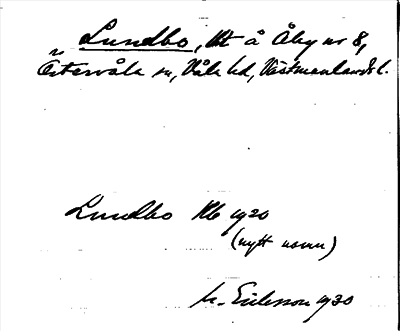 Lundbo, lht å Åby nr 8,
Östervåla sn, Våla hd, Västmanlands l.
Lundbo Kb 1920
(nytt namn)
M. Eriksson 1930